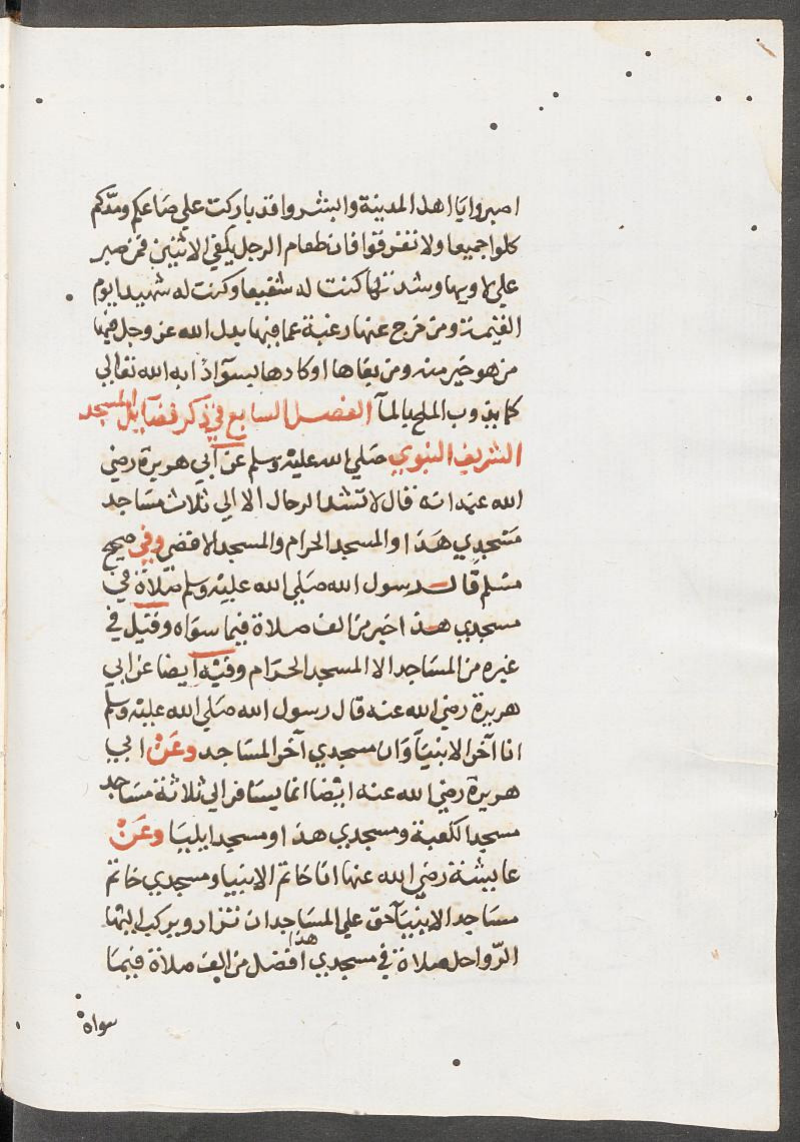 اصبروا يا اهل المدينة وابشروا قد باركت علي صاعكم ومدّكم
كلوا جميعا ولا تفرقوا فان طعام الرجل يكفي الاثنين فمن صبر
علي لاويها وشدتها كنت له شفيعا وكنت له شهيدا يوم
القيمة ومن خرج عنها رغبة عما فيها بدل الله عز وجل فيها
من هو خير منه ومن بغاها او كادها بسوآ اذابه الله تعالي
كما يذوب الملح بالمآ الفصل السابع في ذكر فضآيل المسجد
الشريف النبوي صلي الله عليه وسلم عن ابي هريرة رضي
الله عنه انه قال لا تشد الرحال الا الي ثلاث مساجد
مسجدي هذا والمسجد الحرام والمسجد الاقصي وفي صحيح
مسلم قال رسول الله صلي الله عليه وسلم صلاة في
مسجدي هذا خير من الف صلاة فيما سواه وقيل في
غيره من المساجد الا المسجد الحرام وفيه ايضا عن ابي
هريرة رضي الله عنه قال رسول الله صلي الله عليه وسلم
انا آخر الانبيآ وان مسجدي آخر المساجد وعن ابي
هريرة رضي الله عنه ايضا انما يسافر الي ثلاثة مساجد
مسجد الكعبة ومسجدي هذا ومسجد ايليا وعن
عايشة رضي الله عنها انا خاتم الانبيا ومسجدي خاتم
مساجد الانبيآ احق علي المساجد ان تزار ويركب اليها
الرّواحل صلاة في مسجدي هذا افضل من الف صلاة فيما
سواه